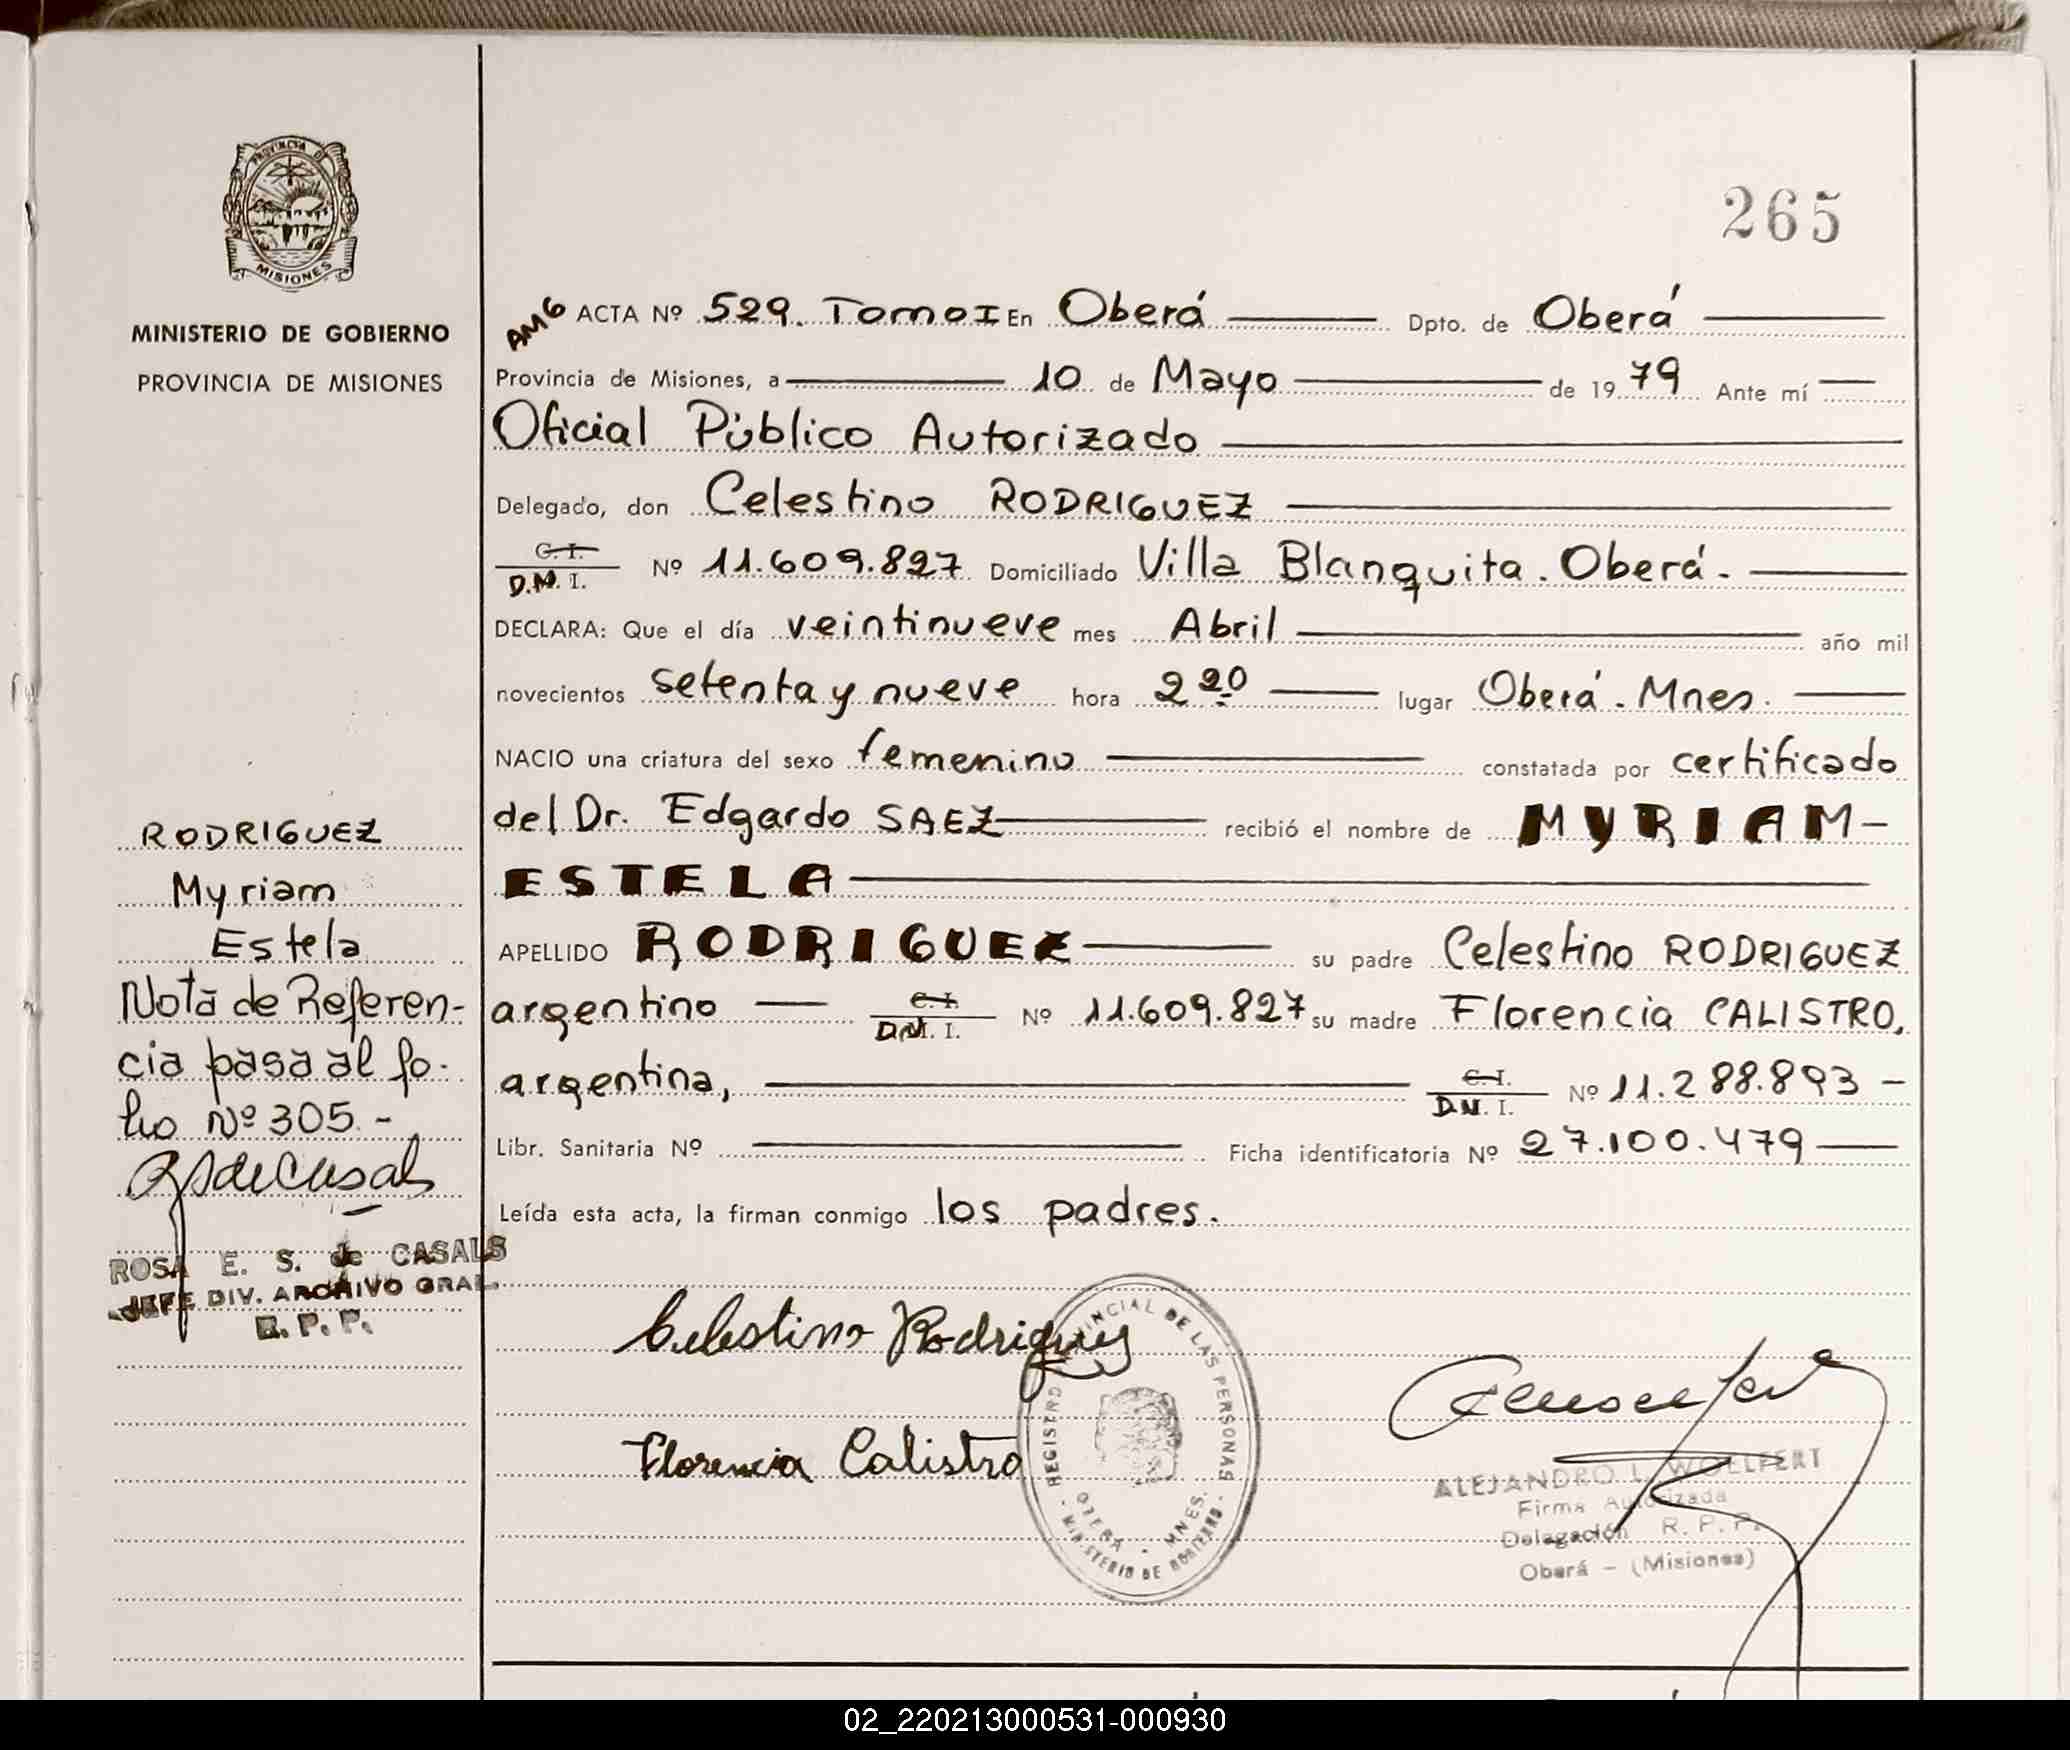 PROVINCIA DE
MISIONES
MINISTERIO DE GOBIERNO
PROVINCIA DE MISIONES
RODRIGUEZ
Myriam
Estela
Nota de Referen-
cia pasa al fo-
lio Nº 305.-
ROSA E. S. de CASALS
JEFE DIV. ARCHIVO GRAL.
R. P. P.
265
AMG ACTA Nº 529. Tomo I En Oberá Dpto. de Oberá
Provincia de Misiones, a 10 de Mayo de 1979 Ante mí
Oficial Público Autorizado
Delegado, don Celestino RODRIGUEZ
C. I.
D.N. I. Nº 11.609.827 Domiciliado Villa Blanquita. Oberá.
DECLARA: Que el día veintinueve mes Abril año mil
novecientos setenta y nueve hora 2 20 lugar Oberá. Mnes.
NACIO una criatura del sexo femenino constatada por certificado
del Dr. Edgardo SAEZ recibió el nombre de MYRIAM-
ESTELA
APELLIDO RODRIGUEZ su padre Celestino RODRIGUEZ
argentino C. I. D.N. I. Nº 11.609.827 su madre Florencia CALISTRO,
argentina, C. I. D.N. I. Nº 11.288.893 -
Libr. Sanitaria Nº Ficha identificatoria Nº 27.100.479
Leída esta acta, la firman conmigo los padres.
Celestino Rodriguez
Florencia Calistro
REGISTRO PROVINCIAL DE LAS PERSONAS
OBERA - MNES.
- MINISTERIO DE GOBIERNO -
ALEJANDRO L. WOELFERT
Firma Autorizada
Delegación R. P. P.
Oberá - (Misiones)
02_220213000531-000930